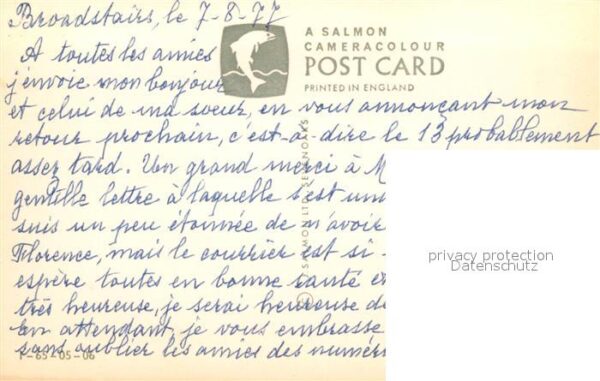 Broadstairs, le 7-8-77
A SALMON
CAMERACOLOUR
POST CARD
PRINTED IN ENGLAND
A toutes les amies
j'envoie mon bonjour
et celui de ma soeur, en vous annonçant mon
retour prochain, c'est-à-dire le 13 probablement
assez tard. Un grand merci à M
gentille lettre à laquelle s'est
suis un peu étonnée de n'avoir
Florence, mais le courrier est si
espère toutes en bonne santé
très heureuse, je serai heureuse de
en attendant, je vous embrasse
sans oublier les amies des numér
1-65-05-06
SALMON LTD. SEVENOAKS
privacy protection
Datenschutz